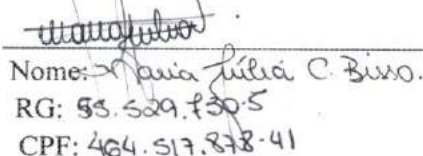 Nome: Maria Júlia C. Bisso.
RG: 55.529.730-5
CPF: 464.517.878-41